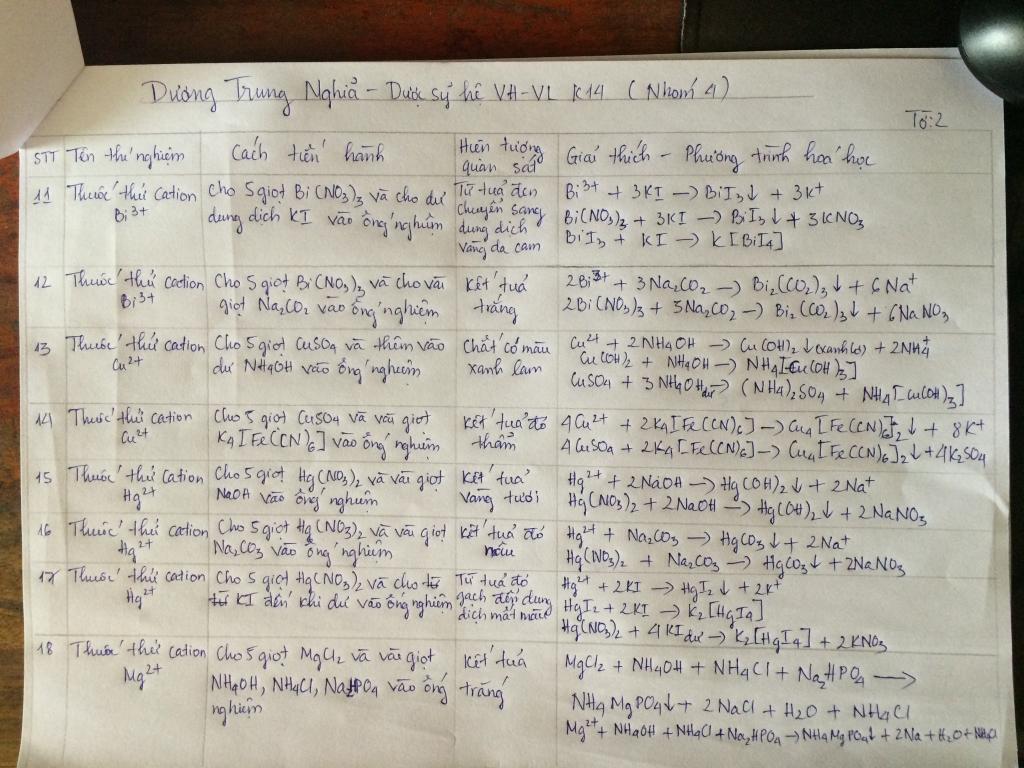 Dương Trung Nghĩa - Dược sỹ hệ VH-VL K14 (Nhóm 4)
Tờ:2
STT
Tên thí nghiệm
Cách tiến hành
Hiện tượng
quan sát
Giải thích - Phương trình hoá học
11
Thuốc thử cation
Bi³⁺
cho 5 giọt Bi(NO₃)₃ và cho dư
dung dịch KI vào ống nghiệm
Từ tủa đen
chuyển sang
dung dịch
vàng da cam
Bi³⁺ + 3KI → BiI₃↓ + 3K⁺
Bi(NO₃)₃ + 3KI → BiI₃↓ + 3KNO₃
BiI₃ + KI → K[BiI₄]
12
Thuốc thử cation
Bi³⁺
Cho 5 giọt Bi(NO₃)₃ và cho vài
giọt Na₂CO₂ vào ống nghiệm
Kết tủa
trắng
2Bi³⁺ + 3Na₂CO₂ → Bi₂(CO₂)₃↓ + 6Na⁺
2Bi(NO₃)₃ + 3Na₂CO₂ → Bi₂(CO₂)₃↓ + 6NaNO₃
13
Thuốc thử cation
Cu²⁺
Cho 5 giọt CuSO₄ và thêm vào
dư NH₄OH vào ống nghiệm
Chất có màu
xanh lam
Cu²⁺ + 2NH₄OH → Cu(OH)₂↓(xanh lơ) + 2NH₄⁺
Cu(OH)₂ + NH₄OH → NH₄[Cu(OH)₃]
CuSO₄ + 3NH₄OH dư → (NH₄)₂SO₄ + NH₄[Cu(OH)₃]
14
Thuốc thử cation
Cu²⁺
Cho 5 giọt CuSO₄ và vài giọt
K₄[Fe(CN)₆] vào ống nghiệm
Kết tủa đỏ
thẫm
4Cu²⁺ + 2K₄[Fe(CN)₆] → Cu₄[Fe(CN)₆]₂↓ + 8K⁺
4CuSO₄ + 2K₄[Fe(CN)₆] → Cu₄[Fe(CN)₆]₂↓ + 4K₂SO₄
15
Thuốc thử Cation
Hg²⁺
Cho 5 giọt Hg(NO₃)₂ và vài giọt
NaOH vào ống nghiệm
Kết tủa
vàng tươi
Hg²⁺ + 2NaOH → Hg(OH)₂↓ + 2Na⁺
Hg(NO₃)₂ + 2NaOH → Hg(OH)₂↓ + 2NaNO₃
16
Thuốc thử cation
Hg²⁺
Cho 5 giọt Hg(NO₃)₂ và vài giọt
Na₂CO₃ vào ống nghiệm
Kết tủa đỏ
nâu
Hg²⁺ + Na₂CO₃ → HgCO₃↓ + 2Na⁺
Hg(NO₃)₂ + Na₂CO₃ → HgCO₃↓ + 2NaNO₃
17
Thuốc thử cation
Hg²⁺
Cho 5 giọt Hg(NO₃)₂ và cho từ
từ KI đến khi dư vào ống nghiệm
Từ tủa đỏ
gạch đến dung
dịch mất màu
Hg²⁺ + 2KI → HgI₂↓ + 2K⁺
HgI₂ + 2KI → K₂[HgI₄]
Hg(NO₃)₂ + 4KI dư → K₂[HgI₄] + 2KNO₃
18
Thuốc thử cation
Mg²⁺
Cho 5 giọt MgCl₂ và vài giọt
NH₄OH, NH₄Cl, Na₂HPO₄ vào ống
nghiệm
Kết tủa
trắng
MgCl₂ + NH₄OH + NH₄Cl + Na₂HPO₄ →
NH₄MgPO₄↓ + 2NaCl + H₂O + NH₄Cl
Mg²⁺ + NH₄OH + NH₄Cl + Na₂HPO₄ → NH₄MgPO₄↓ + 2Na + H₂O + NH₄Cl